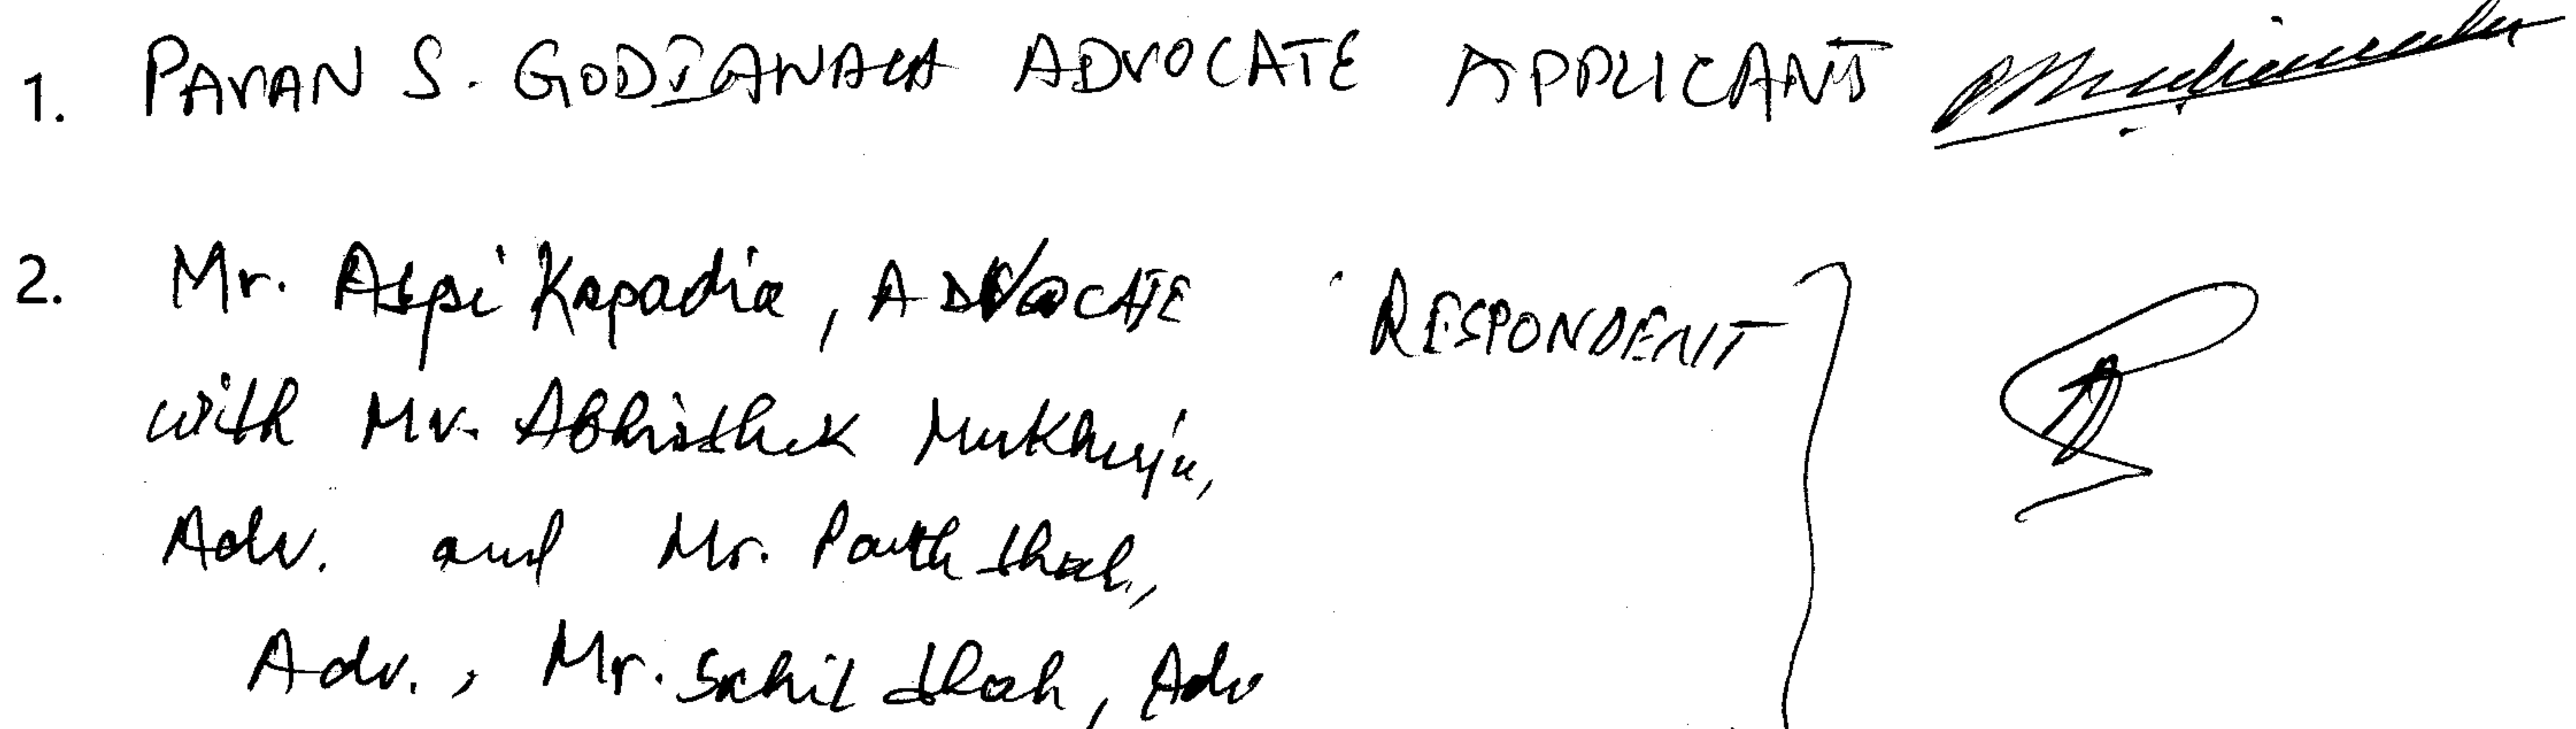 1. PAVAN S. GODIAWALA ADVOCATE APPLICANT
2. Mr. Aspi Kapadia, ADVOCATE RESPONDENT
with Mr. Abhishek Mukherjee,
Adv. and Mr. Parth Shah,
Adv., Mr. Sahil Shah, Adv